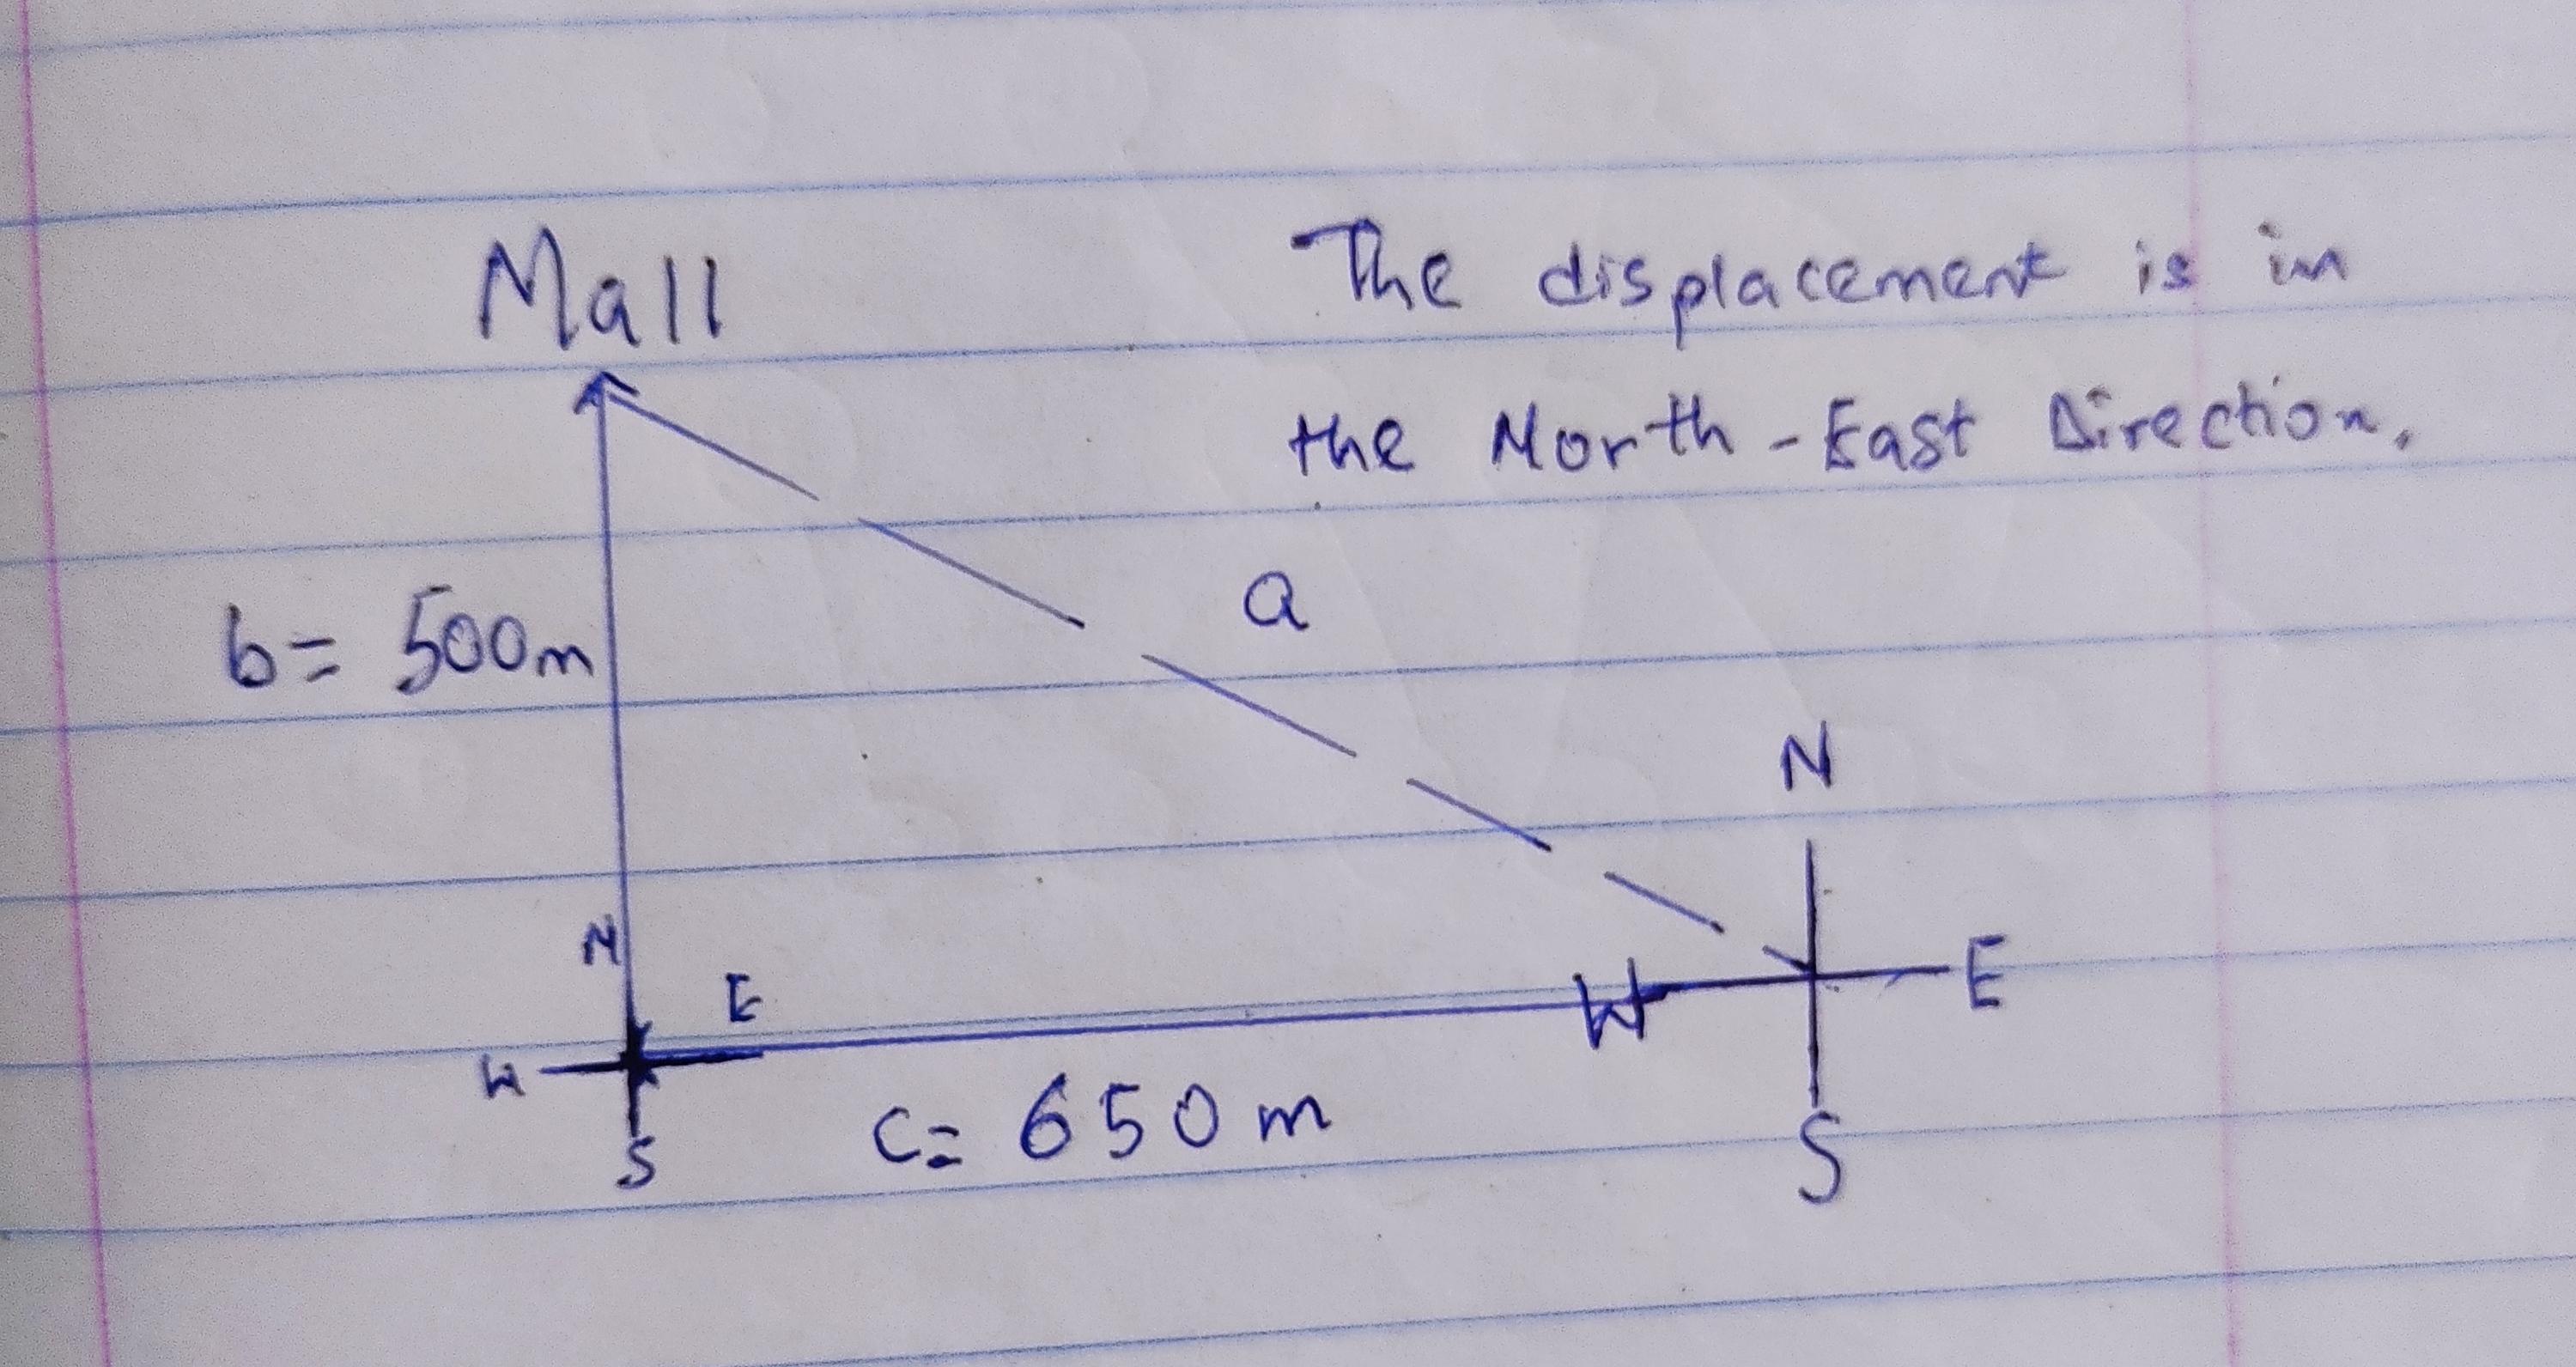 Mall
The displacement is in
the North-East Direction.
a
b= 500m
N
N
E
W
E
W
S
C= 650m
S